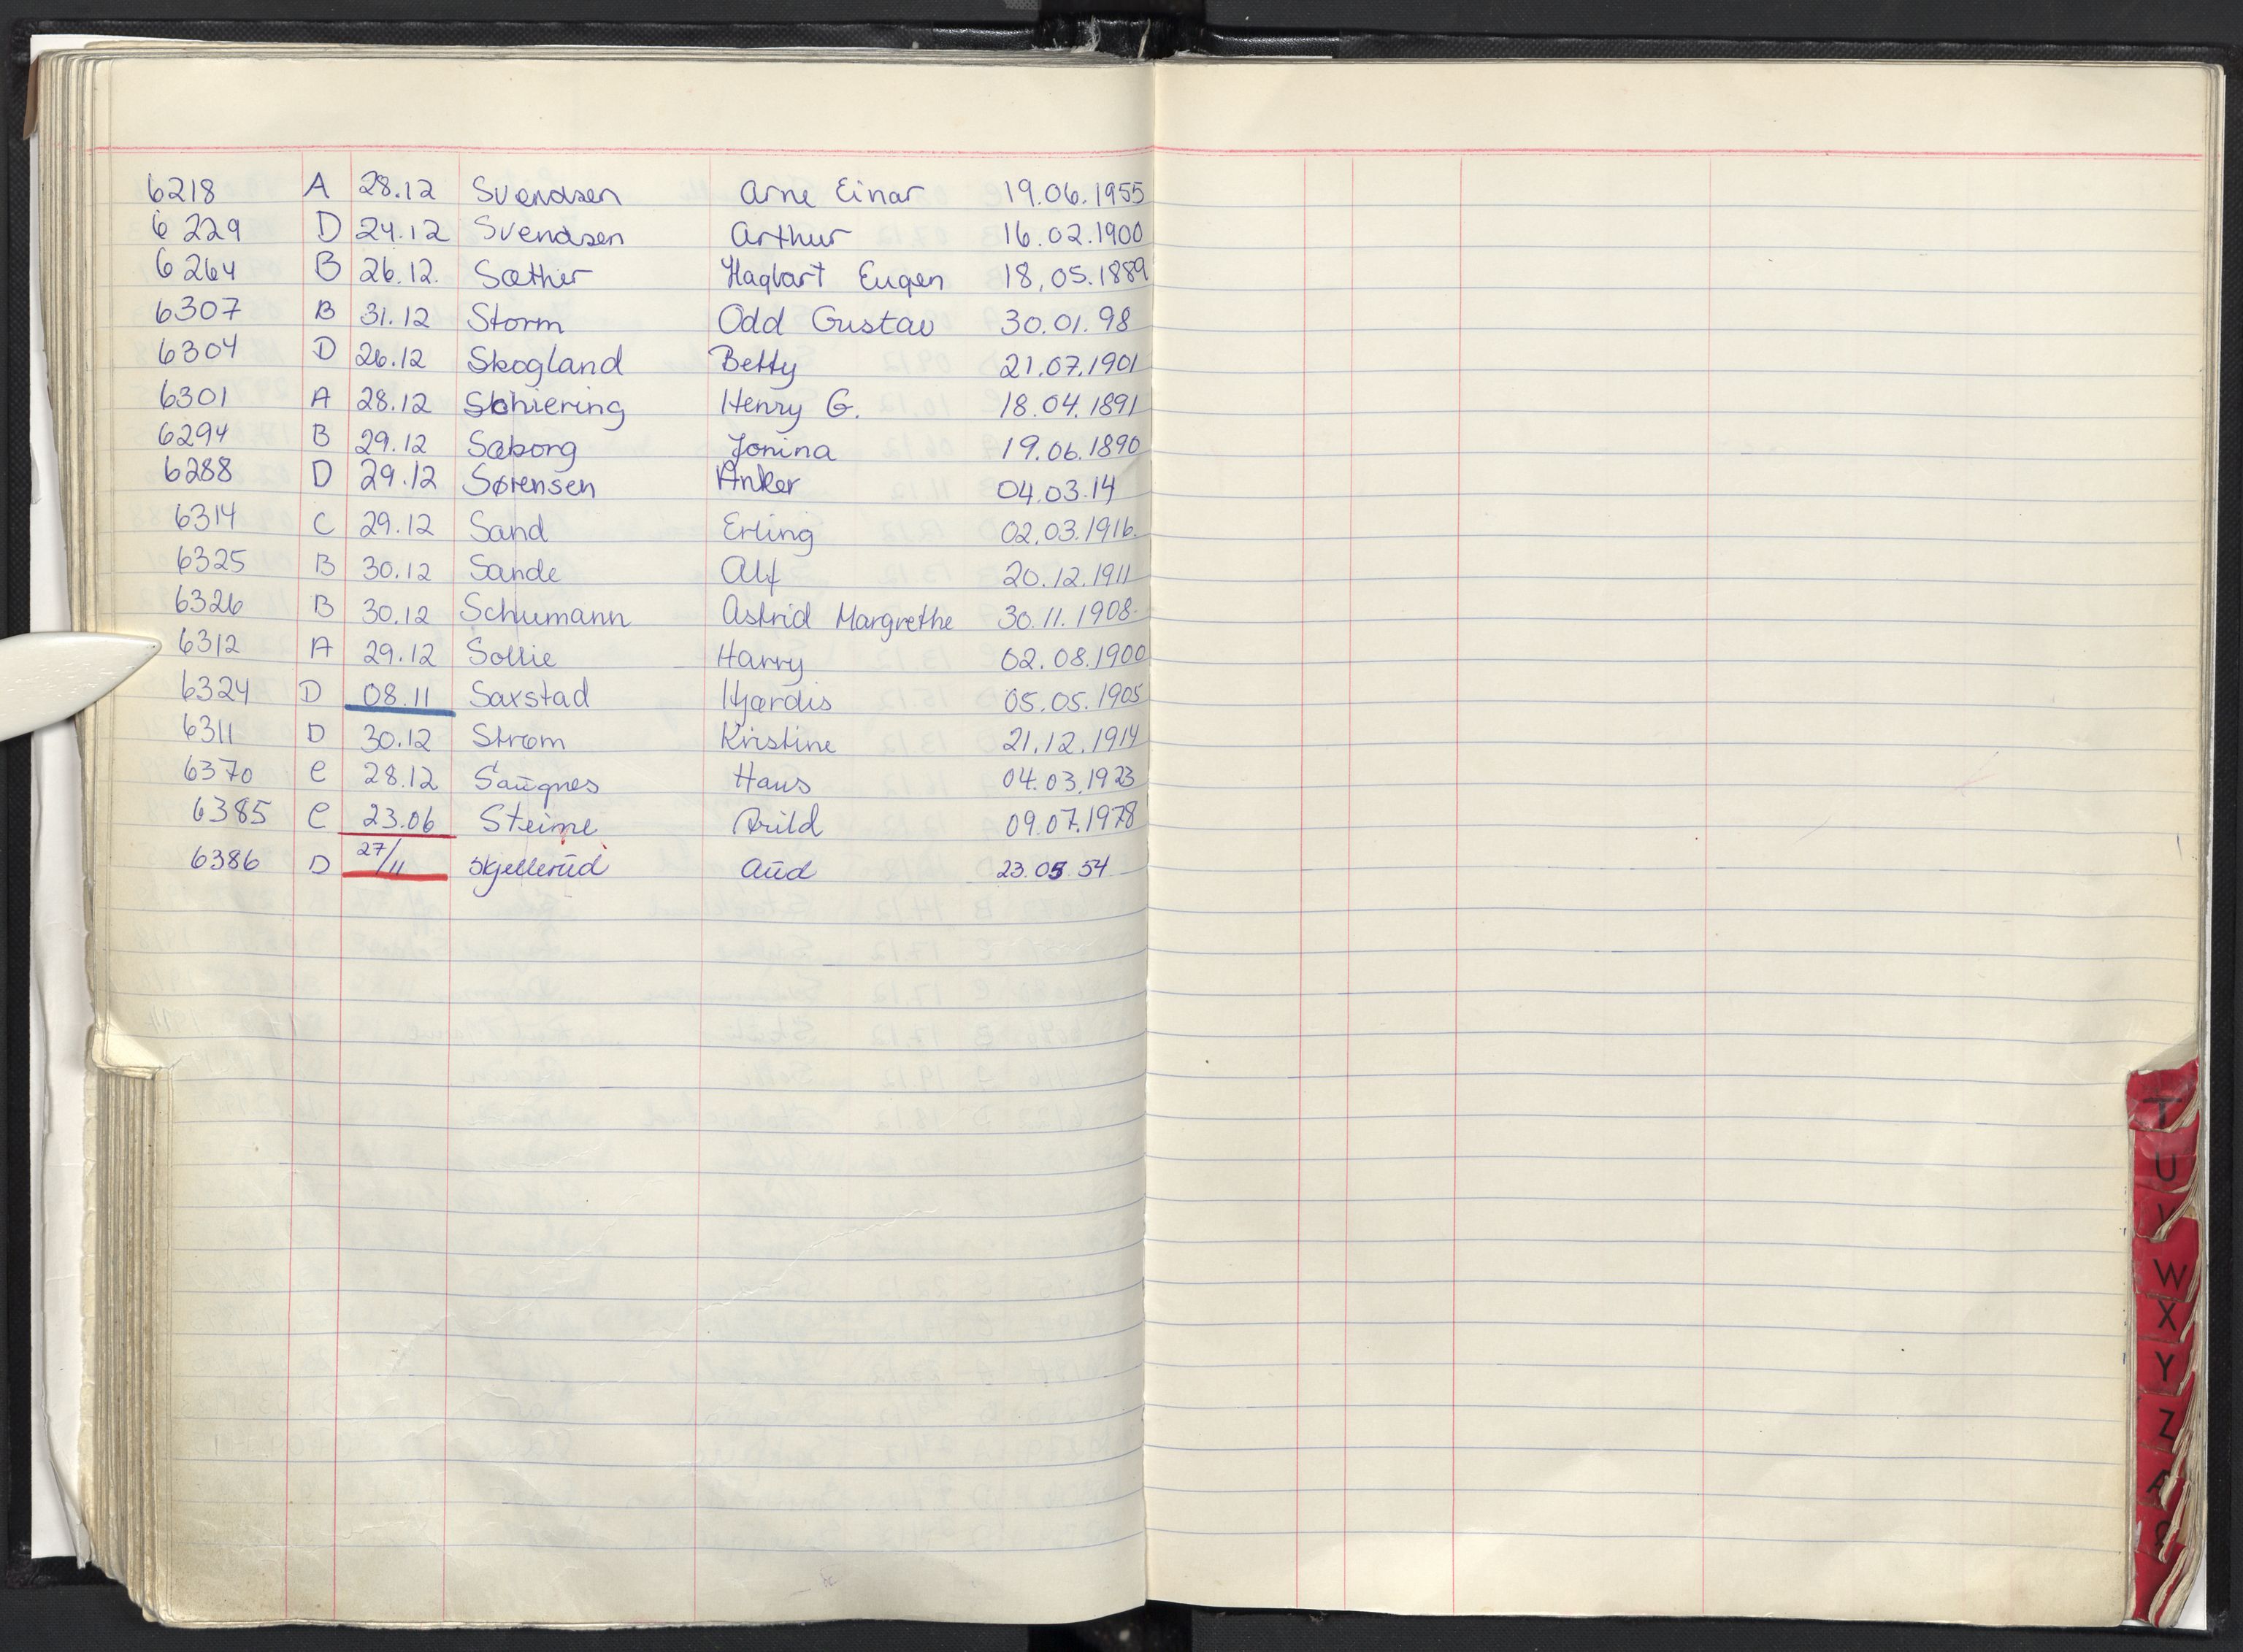 6218 A 28.12 Svendsen Arne Einar 19.06.1955
6229 D 24.12 Svendsen Arthur 16.02.1900
6264 B 26.12. Sæther Hagbart Eugen 18.05.1889
6307 B 31.12 Storm Odd Gustav 30.01.98
6304 D 26.12 Skogland Betty 21.07.1901
6301 A 28.12 Schiering Henry G. 18.04.1891
6294 B 29.12 Sæborg Jonina 19.06.1890
6288 D 29.12 Sørensen Anker 04.03.14
6314 C 29.12 Sand Erling 02.03.1916.
6325 B 30.12 Sande Alf 20.12.1911
6326 B 30.12 Schumann Astrid Margrethe 30.11.1908
6312 A 29.12 Sollie Harry 02.08.1900
6324 D 08.11 Saxstad Hjørdis 05.05.1905
6311 D 30.12 Strøm Kristine 21.12.1914
6370 C 28.12 Saugnes Hans 04.03.1923
6385 C 23.06 Steine Arild 09.07.1978
6386 D 27/11 Skjellerud Aud 23.05 54
T
U
V
W
X
Y
Z